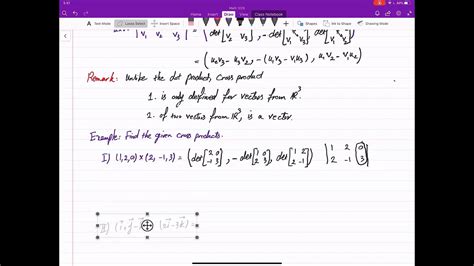 Home Insert Draw View Class Notebook
| v₁ v₂ v₃ | = (det[v₂ v₃], -det[v₁ v₃], det[v₁ v₂])
= (u₂v₃ - u₃v₂, -(u₁v₃ - v₁u₃), u₁v₂ - v₁u₂)
Remark: Unlike the dot product, cross product
1. is only defined for vectors from ℝ³.
2. of two vectors from ℝ³, is a vector.
Example: Find the given cross products.
I) (1,2,0) × (2,-1,3) = (det[2 0; -1 3], -det[1 0; 2 3], det[1 2; 2 -1]) | 1 2 0
2 -1 3 |
II) (i+j- (2i-3k) =